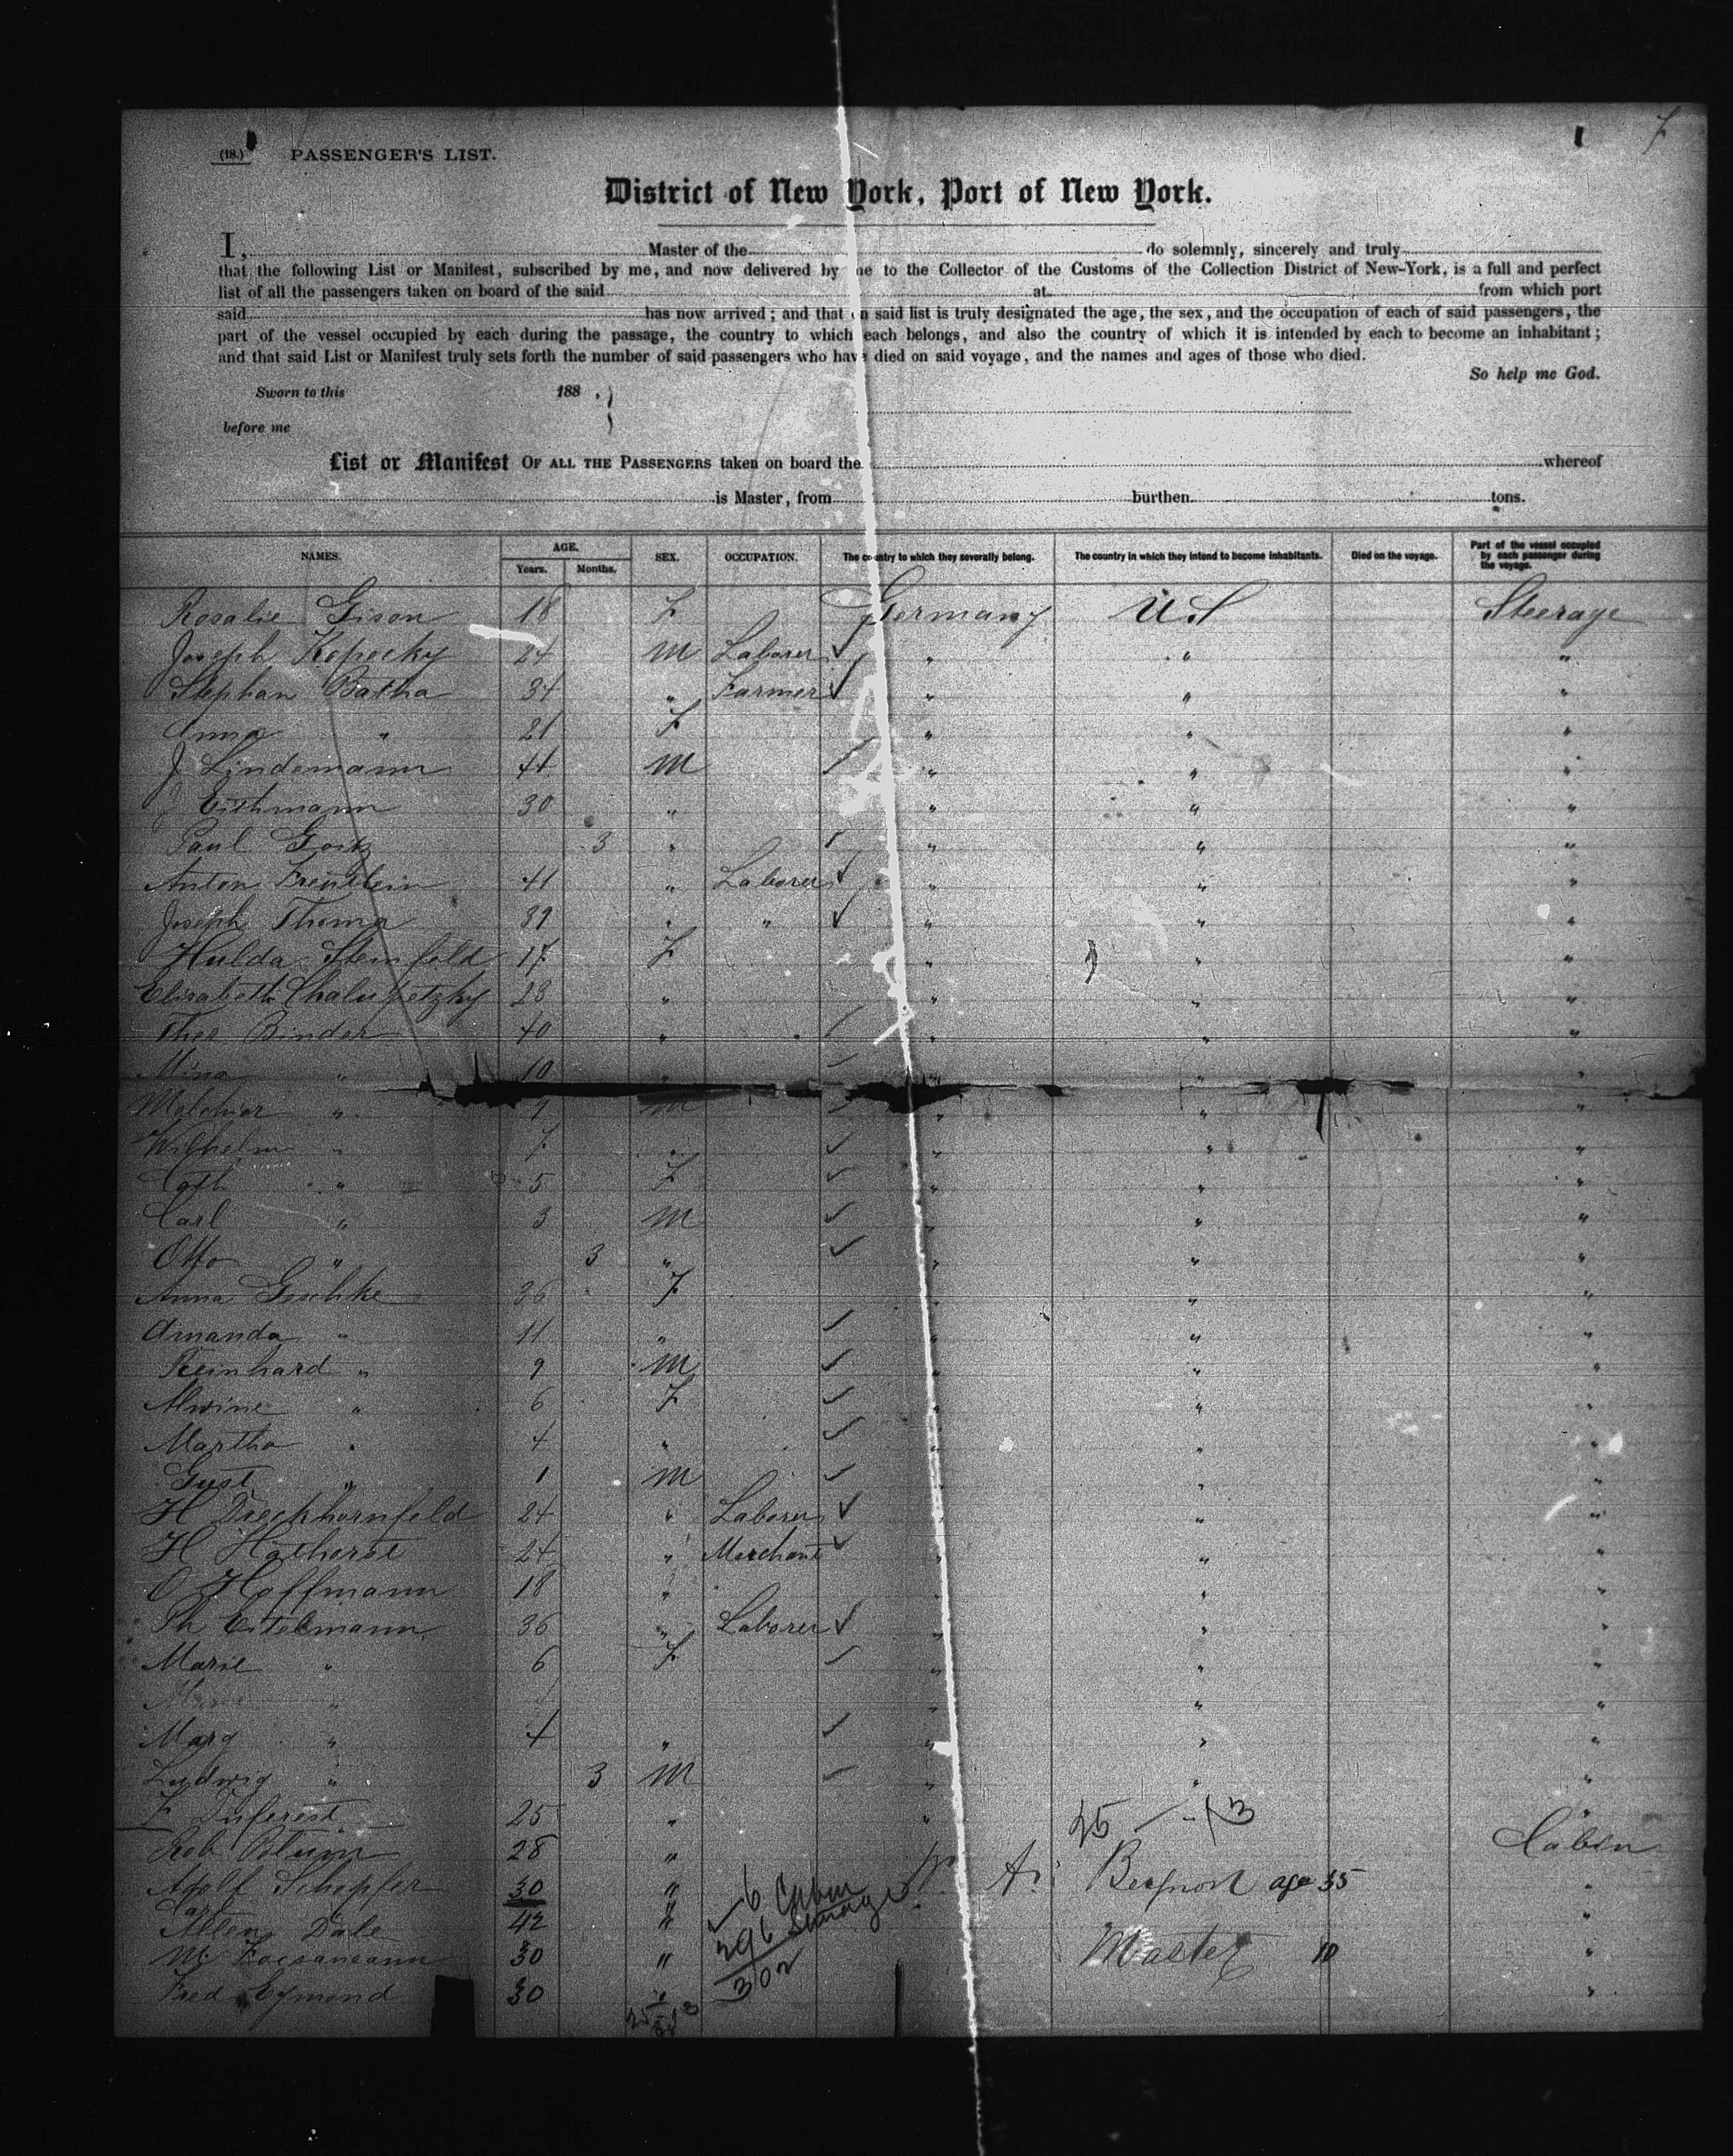 (18.) PASSENGER'S LIST.
District of New York, Port of New York.
I, Master of the do solemnly, sincerely and truly
that the following List or Manifest, subscribed by me, and now delivered by me to the Collector of the Customs of the Collection District of New-York, is a full and perfect
list of all the passengers taken on board of the said at from which port
said has now arrived; and that on said list is truly designated the age, the sex, and the occupation of each of said passengers, the
part of the vessel occupied by each during the passage, the country to which each belongs, and also the country of which it is intended by each to become an inhabitant;
and that said List or Manifest truly sets forth the number of said passengers who have died on said voyage, and the names and ages of those who died.
So help me God.
Sworn to this 188 .
before me
List or Manifest OF ALL THE PASSENGERS taken on board the whereof
is Master, from burthen tons.
NAMES. AGE. Years. Months. SEX. OCCUPATION. The country to which they severally belong. The country in which they intend to become inhabitants. Died on the voyage. Part of the vessel occupied by each passenger during the voyage.
Rosalie Gison 18 F Germany U S Steerage
Joseph Kopocky 24 M Laborer " " "
Stephan Batha 34 " Farmer " " "
Anna " 21 F " " "
J Lindemann 44 M " " "
Eithmann 30 " " " "
Paul Goitz 3 " " " "
Anton 41 " Laborer " " "
Joseph Thoma 39 " " " " "
Hulda Steinfeld 17 F " " "
Elisabeth Chalupetzky 23 " " " "
Ther Binder 40 " " " "
Mina " 10 " " " "
Melchior " 9 M " " "
Wilhelm " 7 " " " "
Cath " 5 F " " "
Carl " 3 M " " "
Otto " 3 " " " "
Anna Geschke 36 F " " "
Amanda " 11 " " " "
Reinhard " 9 M " " "
Alwine " 6 F " " "
Martha " 4 " " " "
Gust " 1 M " " "
H Dieckhornfeld 24 " Laborer " " "
H Hathorst 24 " Merchant " " "
O Hoffmann 18 " " " "
Ph Eitelmann 36 " Laborer " " "
Marie " 6 F " " "
" " " "
Marg " 4 " " " "
Ludwig " 3 M " " "
25 " " 25 3 "
Rob Blum 28 " Cabin
Adolf Schepfer 30 " age 35 "
Carl " "
Allen Dale 42 " "
M 30 " Master 10 "
Fred Egmond 30 " "
6 Cabin
296 Steerage
302